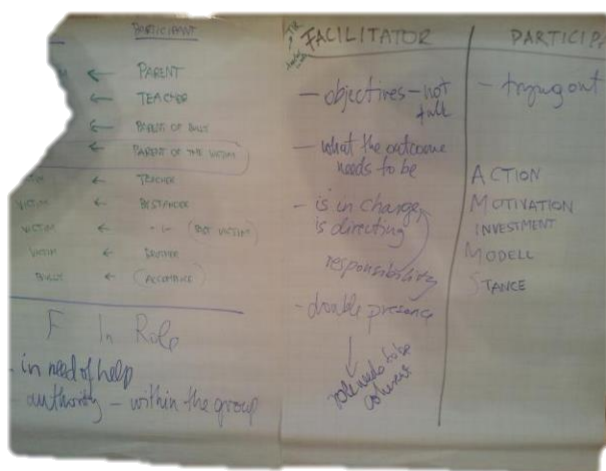 PARTICIPANT
← PARENT
← TEACHER
← PARENT OF BULLY
← PARENT OF THE VICTIM
← TEACHER
VICTIM ← BYSTANDER
VICTIM ← - 11 - (BUT VICTIM)
VICTIM ← BROTHER
← (ACCEPTANCE)
F In Role
- in need of help
- authority - within the group
FACILITATOR
- objectives - not
- what the outcome
needs to be
- is in charge,
is directing
responsibility
- double presence
↓
role needs to be
coherent
PARTICIPA
- trying out
ACTION
MOTIVATION
INVESTMENT
MODELL
STANCE